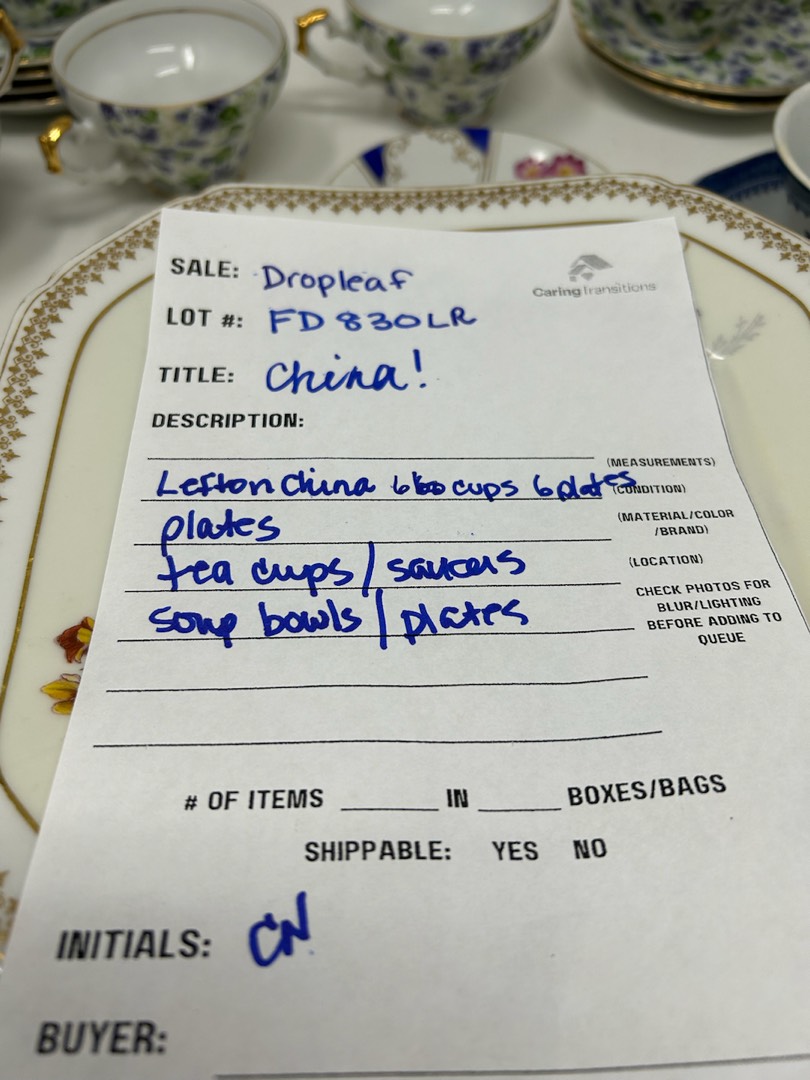 CaringTransitions
SALE: Dropleaf
LOT #: FD 830LR
TITLE: China!
DESCRIPTION:
(MEASUREMENTS)
Lefton China 6 cups 6 plates (CONDITION)
plates (MATERIAL/COLOR
/BRAND)
tea cups/saucers (LOCATION)
soup bowls/plates CHECK PHOTOS FOR
BLUR/LIGHTING
BEFORE ADDING TO
QUEUE
# OF ITEMS ______ IN _____ BOXES/BAGS
SHIPPABLE: YES NO
INITIALS: CN
BUYER: